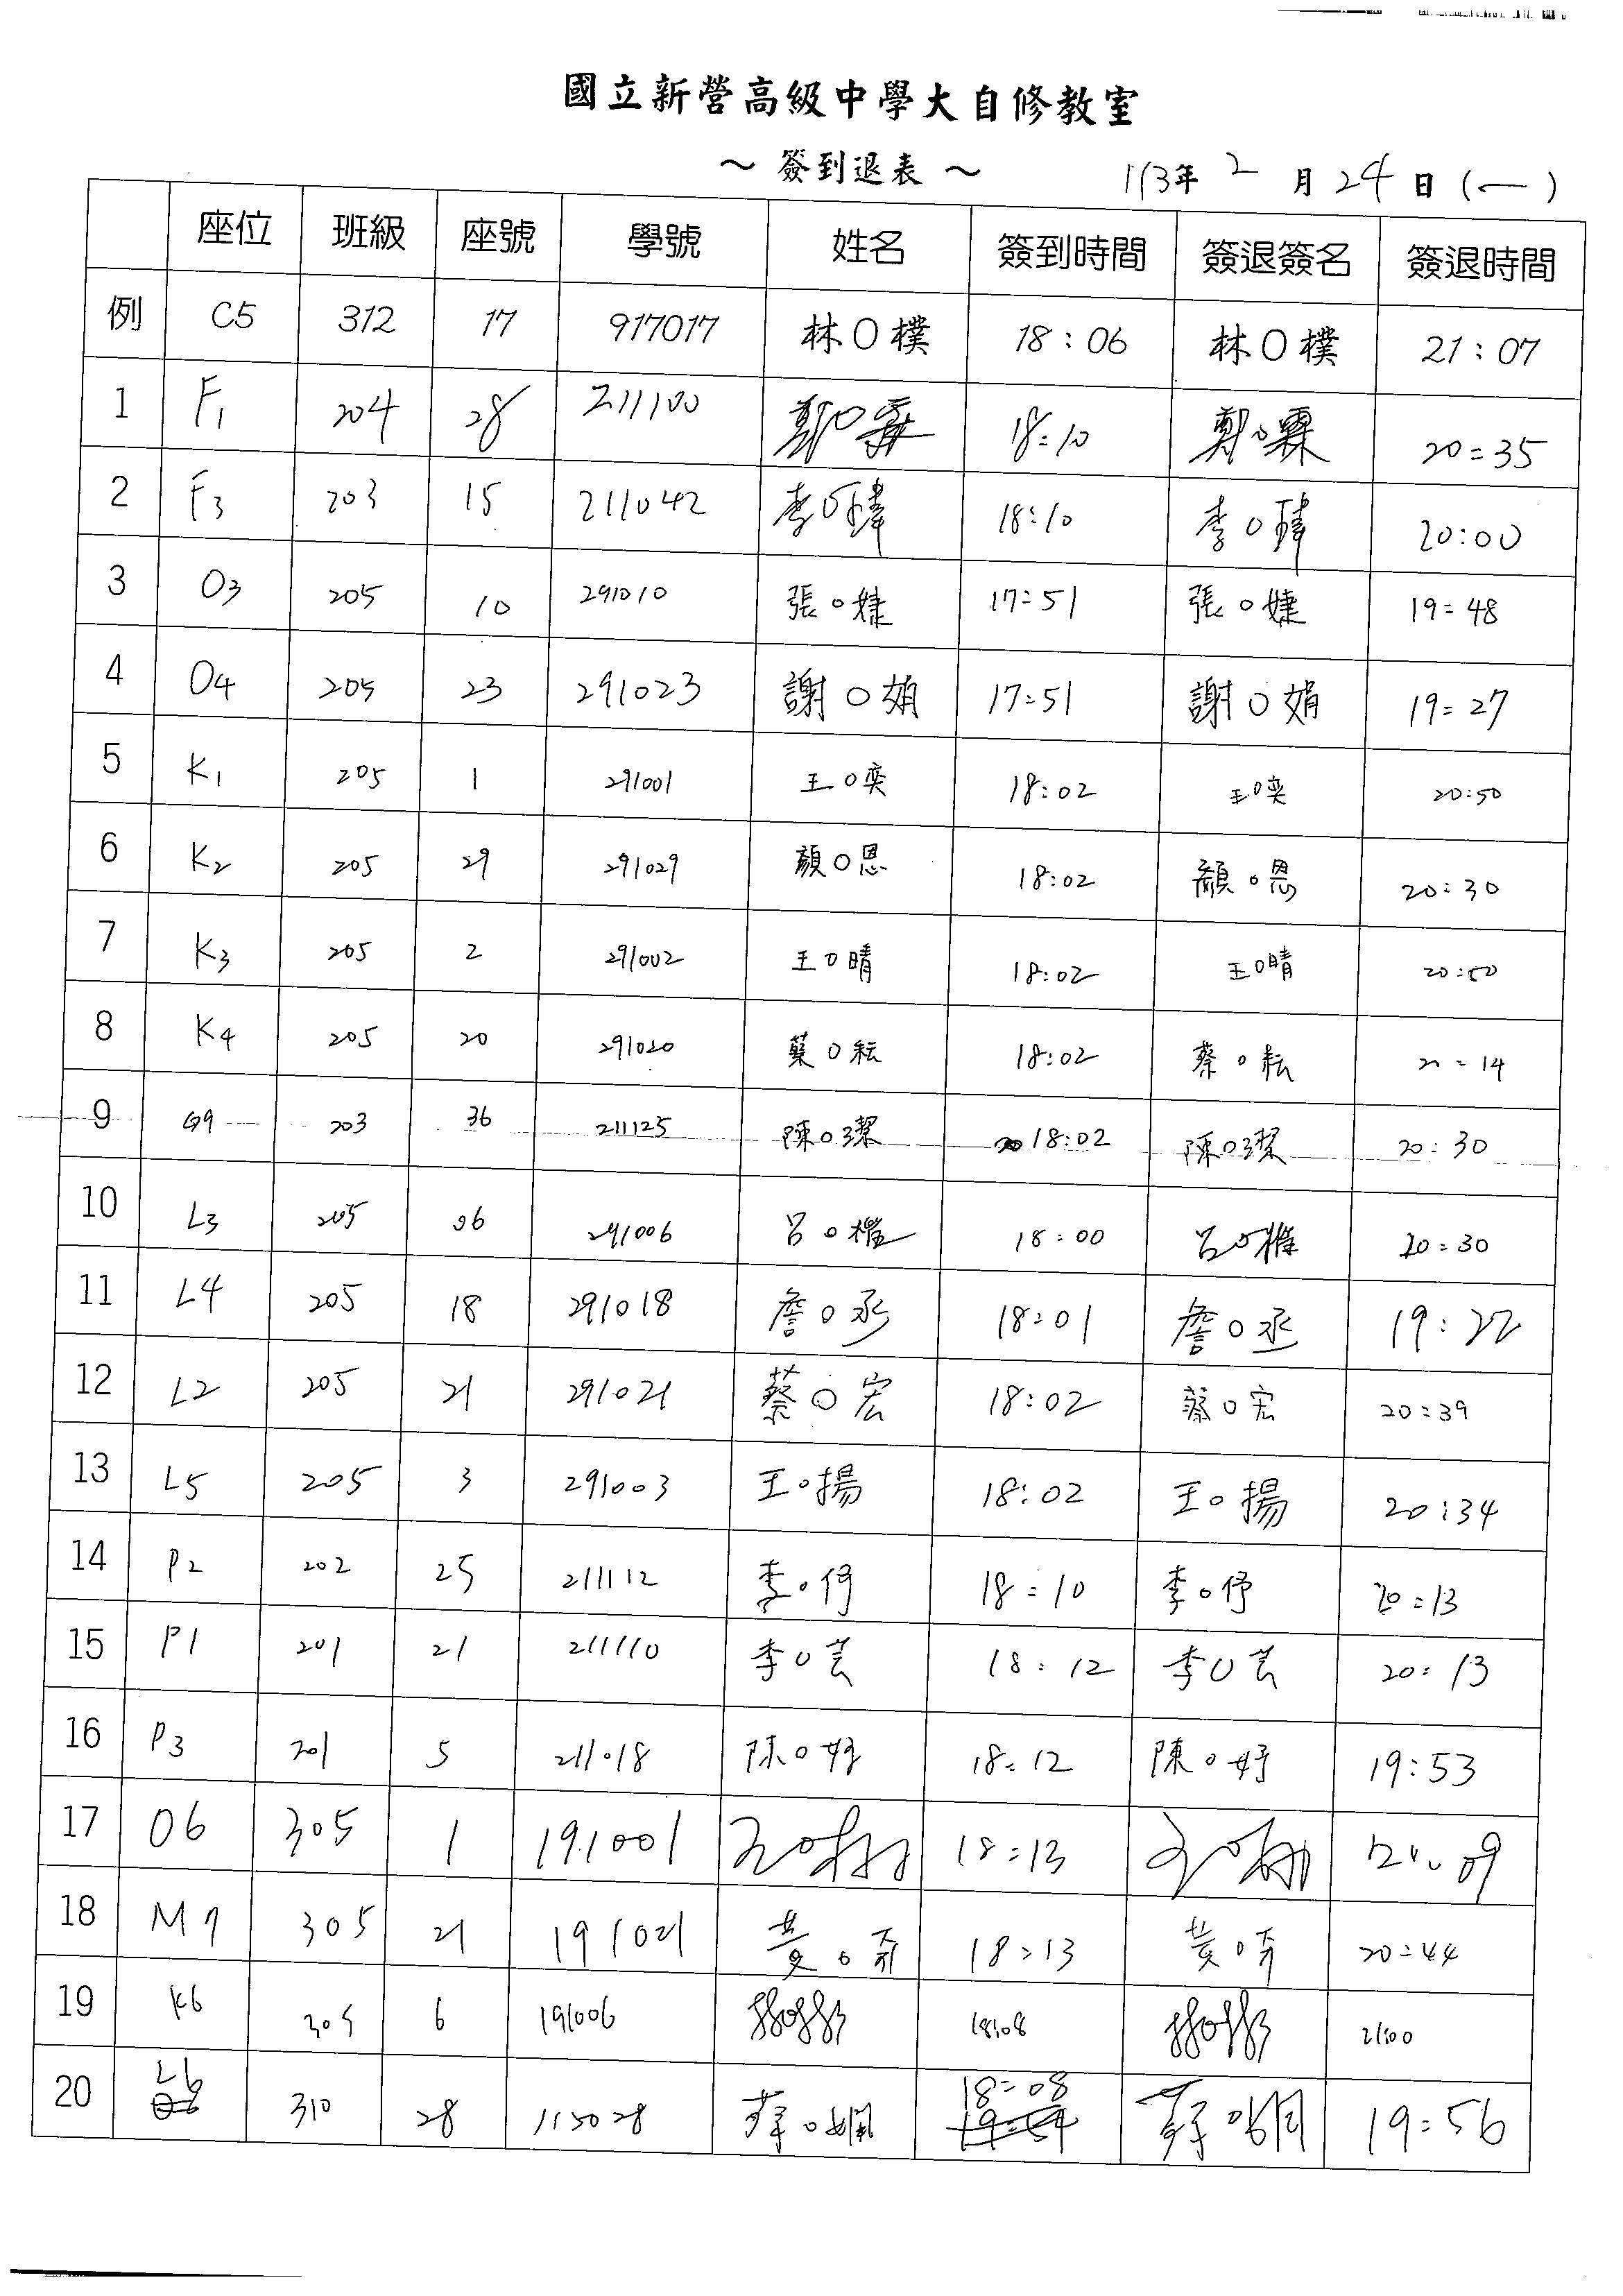 國立新營高級中學大自修教室
～ 簽到退表 ～ 113年 2 月 24 日 (一)
座位 班級 座號 學號 姓名 簽到時間 簽退簽名 簽退時間
例 C5 312 17 917017 林O樸 18:06 林O樸 21:07
1 F1 204 28 211100 鄭O霖 18:10 鄭O霖 20:35
2 F3 203 15 211042 李O瑋 18:10 李O瑋 20:00
3 O3 205 10 291010 張O婕 17:51 張O婕 19:48
4 O4 205 23 291023 謝O娟 17:51 謝O娟 19:27
5 K1 205 1 291001 王O奕 18:02 王O奕 20:50
6 K2 205 29 291029 顏O恩 18:02 顏O恩 20:30
7 K3 205 2 291002 王O晴 18:02 王O晴 20:50
8 K4 205 20 291020 蔡O耘 18:02 蔡O耘 20:14
9 G9 203 36 211125 陳O潔 18:02 陳O潔 20:30
10 L3 205 06 291006 呂O 18:00 呂O 20:30
11 L4 205 18 291018 詹O丞 18:01 詹O丞 19:22
12 L2 205 21 291021 蔡O宏 18:02 蔡O宏 20:39
13 L5 205 3 291003 王O揚 18:02 王O揚 20:34
14 P2 202 25 211112 李O伃 18:10 李O伃 20:13
15 P1 201 21 211110 李O芸 18:12 李O芸 20:13
16 P3 201 5 211018 陳O妤 18:12 陳O妤 19:53
17 O6 305 1 191001 18:13
18 M7 305 21 191021 黃O 18:13 黃O 20:44
19 K6 305 6 191006 18:08 21:00
20 L6 310 28 115028 O嫻 18:08 O嫻 19:56